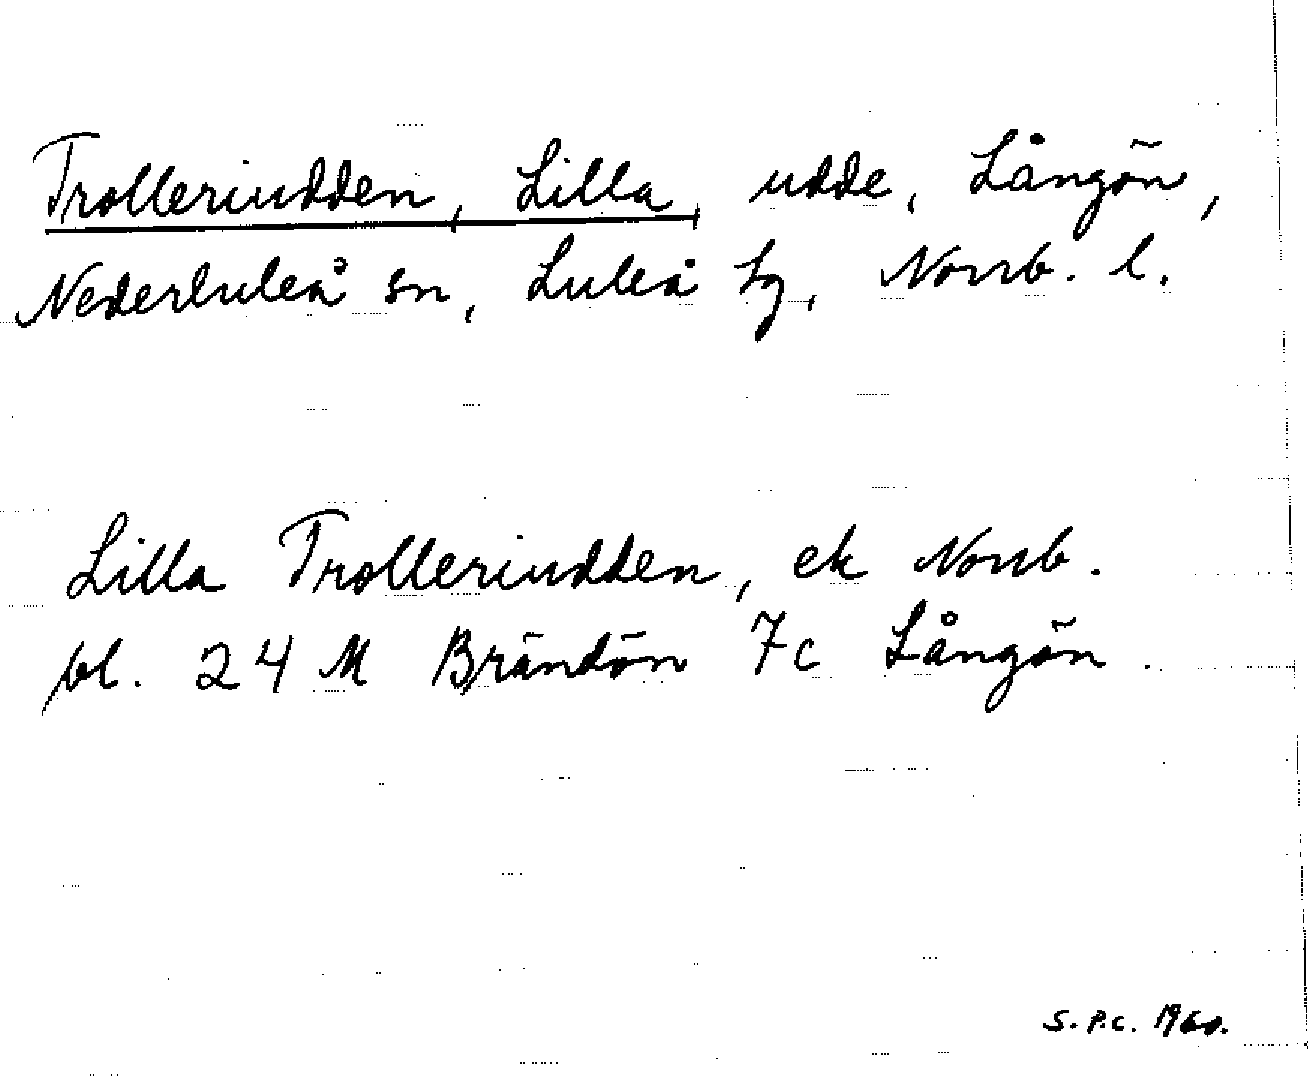 Trolleriudden, Lilla, udde, Långön,
Nederluleå sn, Luleå tg, Norrb. l.
Lilla Trolleriudden, ek Norrb.
bl. 24 M Brändön 7c Långön.
S.P.C. 1960.